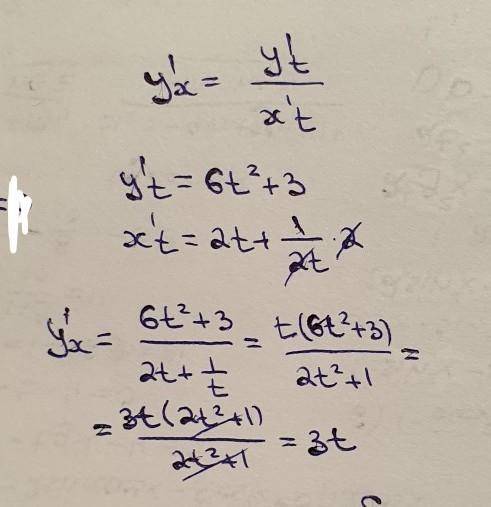 y'x = y't / x't
y't = 6t² + 3
x't = 2t + 1/2t · 2
y'x = 6t² + 3 / 2t + 1/t = t(6t² + 3) / 2t² + 1 =
= 3t(2t² + 1) / 2t² + 1 = 3t